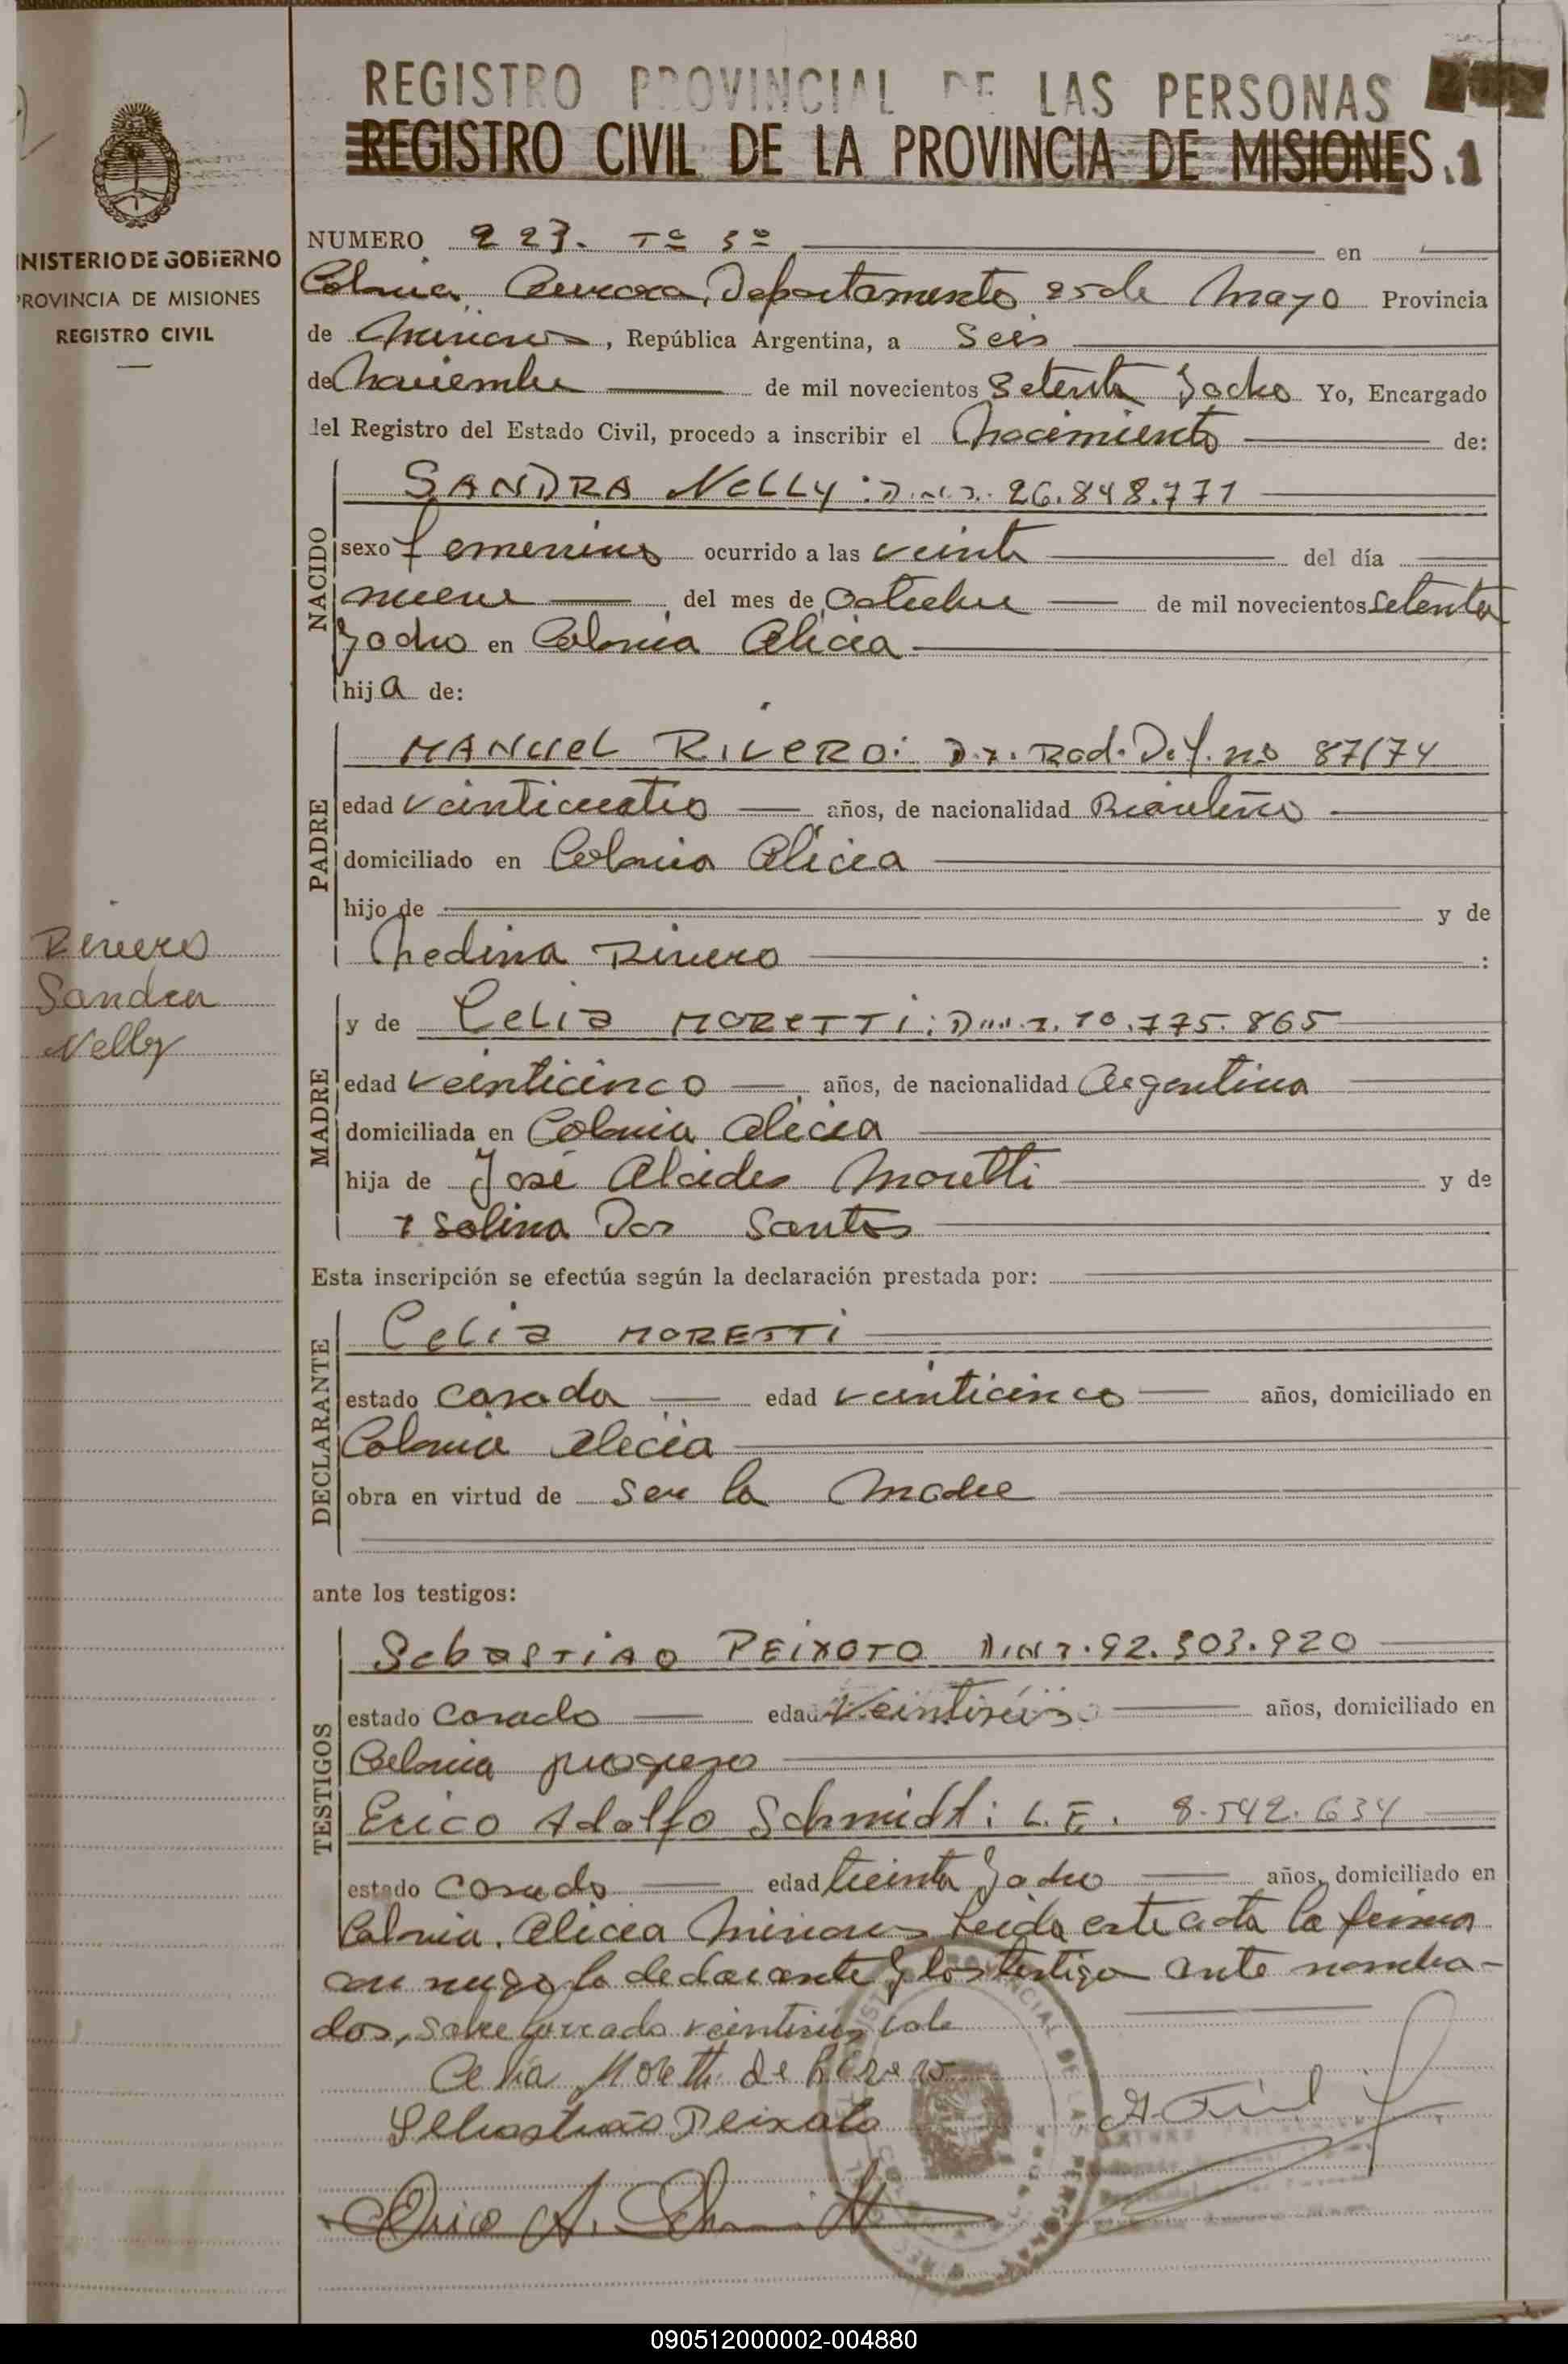 REGISTRO PROVINCIAL DE LAS PERSONAS
REGISTRO CIVIL DE LA PROVINCIA DE MISIONES.1
MINISTERIO DE GOBIERNO
PROVINCIA DE MISIONES
REGISTRO CIVIL
NUMERO 223. Tº 3º en
Colonia Aurora, Departamento 25 de Mayo Provincia
de Misiones, República Argentina, a Seis
de Noviembre de mil novecientos Setenta y ocho Yo, Encargado
del Registro del Estado Civil, procedo a inscribir el Nacimiento de:
NACIDO
SANDRA NELLY: D.N.I. 26.848.771
sexo femenino ocurrido a las veinte del día
nueve del mes de Octubre de mil novecientos setenta
y ocho en Colonia Alicia
hija de:
PADRE
MANUEL RIVERO: D.I. Rad. Def. nº 87174
edad veinticuatro años, de nacionalidad Brasileño
domiciliado en Colonia Alicia
hijo de y de
Medina Rivero :
Rivero
Sandra
Nelly
MADRE
y de Celia MORETTI: D.N.I. 10.775.865
edad veinticinco años, de nacionalidad Argentina
domiciliada en Colonia Alicia
hija de José Alcides Moretti y de
Isolina Dos Santos
Esta inscripción se efectúa según la declaración prestada por:
DECLARANTE
Celia MORETTI
estado casada edad veinticinco años, domiciliado en
Colonia Alicia
obra en virtud de ser la Madre
ante los testigos:
TESTIGOS
Sebastiao PEIXOTO D.N.I. 92.303.920
estado casado edad veintiséis años, domiciliado en
Colonia progreso
Erico Adolfo Schmidt: L.E. 8.542.634
estado casado edad treinta y ocho años, domiciliado en
Colonia Alicia Misiones Leida este acta la firman
con migo la declarante y los testigos ante nombra-
dos, sobre borrado veintiséis vale
Celia Moretti de Rivero
Sebastiao Peixoto
Erico A. Schmidt
090512000002-004880